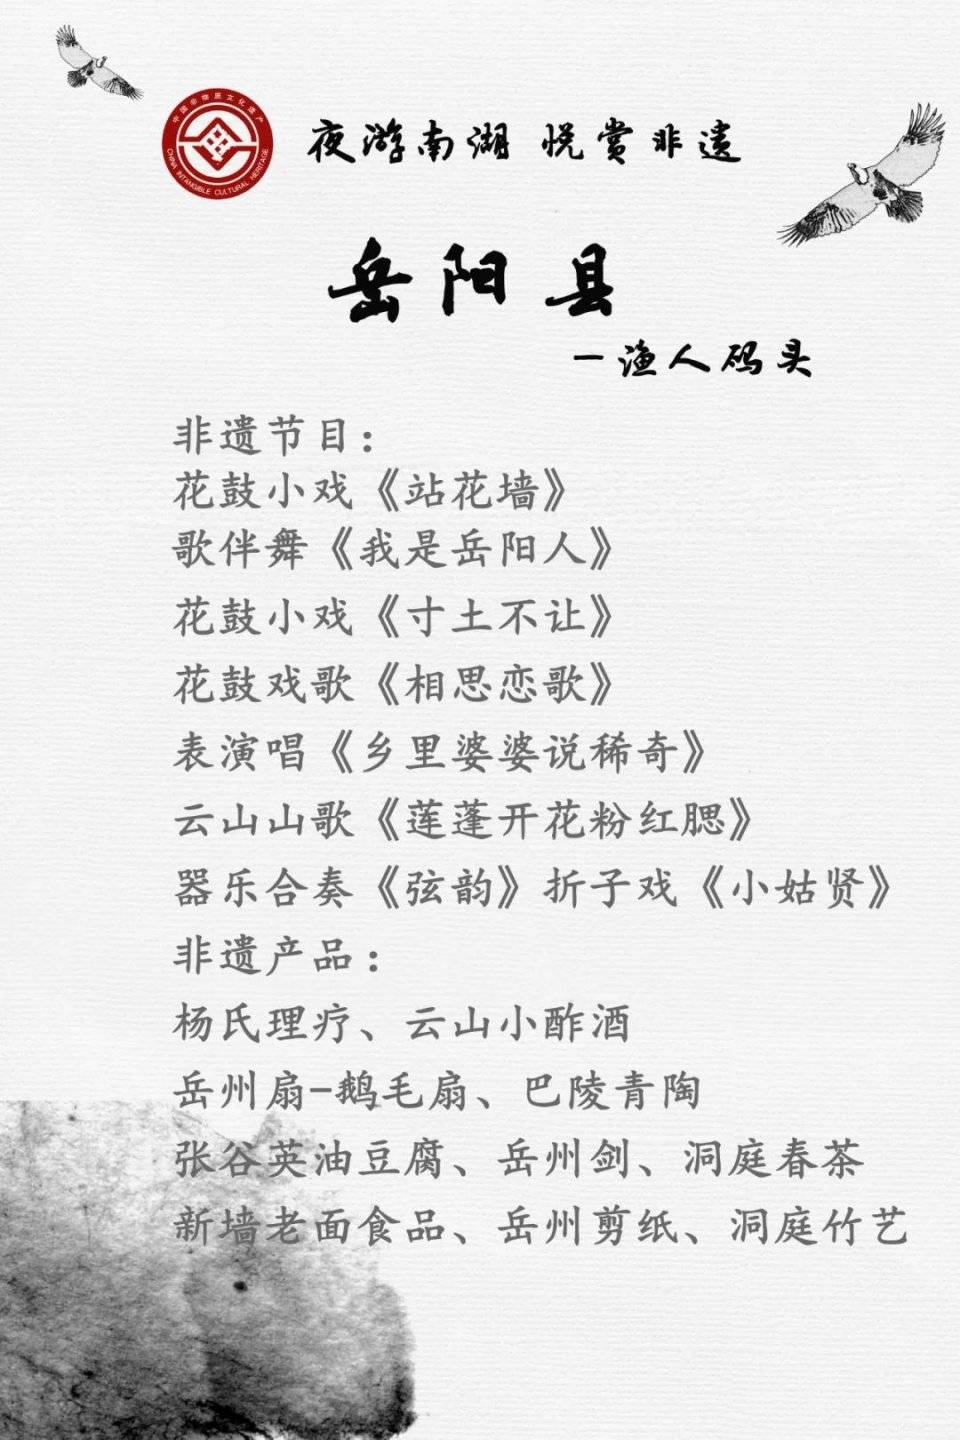 中国非物质文化遗产
CHINA INTANGIBLE CULTURAL HERITAGE
夜游南湖 悦赏非遗
岳阳县
—渔人码头
非遗节目：
花鼓小戏《站花墙》
歌伴舞《我是岳阳人》
花鼓小戏《寸土不让》
花鼓戏歌《相思恋歌》
表演唱《乡里婆婆说稀奇》
云山山歌《莲蓬开花粉红腮》
器乐合奏《弦韵》折子戏《小姑贤》
非遗产品：
杨氏理疗、云山小酢酒
岳州扇-鹅毛扇、巴陵青陶
张谷英油豆腐、岳州剑、洞庭春茶
新墙老面食品、岳州剪纸、洞庭竹艺